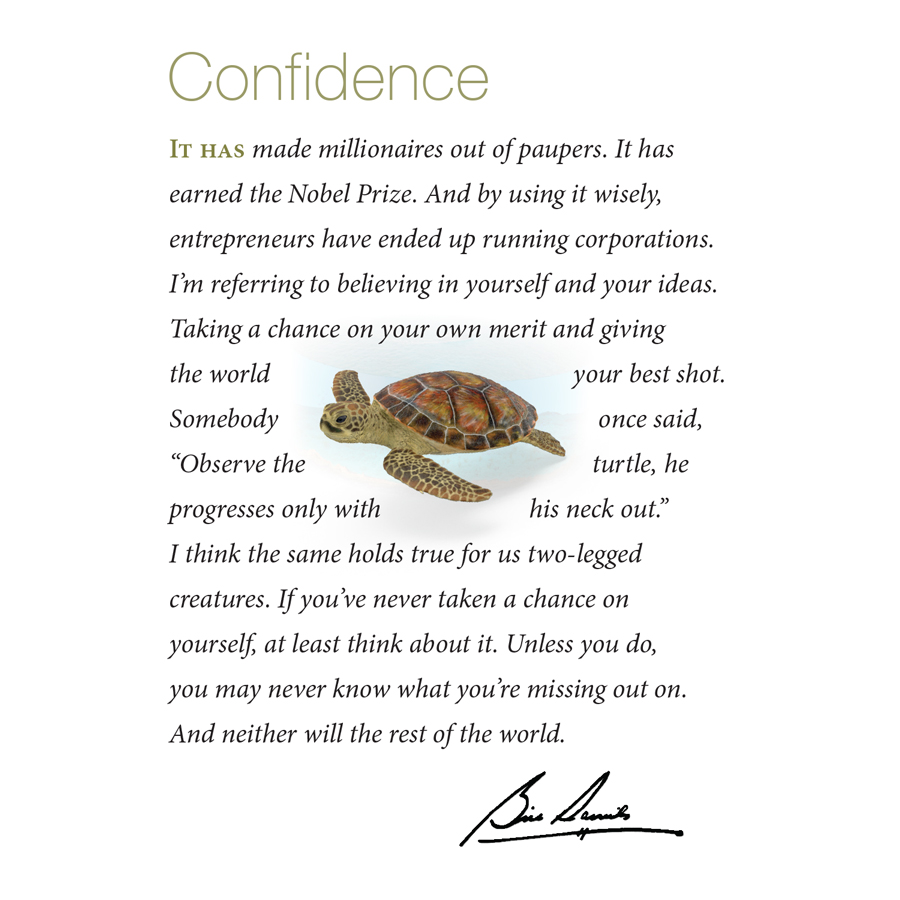 Confidence
IT HAS made millionaires out of paupers. It has
earned the Nobel Prize. And by using it wisely,
entrepreneurs have ended up running corporations.
I’m referring to believing in yourself and your ideas.
Taking a chance on your own merit and giving
the world your best shot.
Somebody once said,
“Observe the turtle, he
progresses only with his neck out.”
I think the same holds true for us two-legged
creatures. If you’ve never taken a chance on
yourself, at least think about it. Unless you do,
you may never know what you’re missing out on.
And neither will the rest of the world.
Bill Daniels